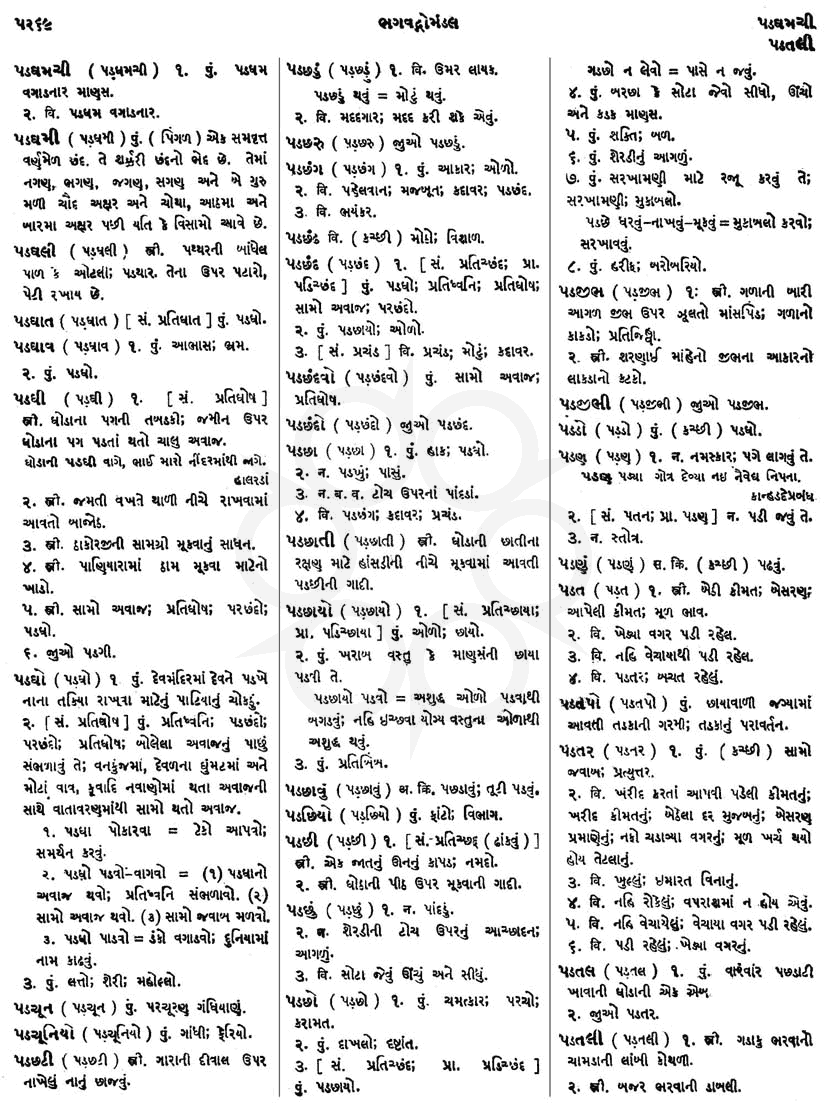 ૫૨૬૯
ભગવદ્ગોમંડલ
પડઘમચી
પડતલી
પડઘમચી ( પડ઼ઘમચી ) ૧. પું. પડઘમ
વગાડનાર માણસ.
૨. વિ. પડઘમ વગાડનાર.
પડઘમી ( પડ઼ઘમી ) પું. ( પિંગળ ) એક સમવૃત્ત
વર્ણમેળ છંદ. તે શર્ક્કરી છંદનો ભેદ છે. તેમાં
નગણ, ભગણ, જગણ, સગણ અને બે ગુરુ
મળી ચૌદ અક્ષર અને ચોથા, આઠમા અને
બારમા અક્ષર પછી યતિ કે વિસામો આવે છે.
પડઘલી ( પડ઼ઘલી ) સ્ત્રી. પથ્થરની બાંધેલ
પાળ કે ઓટલા; પડથાર. તેના ઉપર પટારો,
પેટી રખાય છે.
પડઘાત ( પડ઼ઘાત ) [ સં. પ્રતિઘાત ] પું. પડઘો.
પડઘાવ ( પડ઼ઘાવ ) ૧. પું. આભાસ; ભ્રમ.
૨. પું. પડઘો.
પડઘી ( પડ઼ઘી ) ૧. [ સં. પ્રતિઘોષ ]
સ્ત્રી. ઘોડાના પગની તબડકી; જમીન ઉપર
ઘોડાના પગ પડતાં થતો ચાલુ અવાજ.
ઘોડાની પડઘી વાગે, ભાઈ મારો નીંદરમાંથી જાગે.
હાલરડાં
૨. સ્ત્રી. જમતી વખતે થાળી નીચે રાખવામાં
આવતો બાજોઠ.
૩. સ્ત્રી. ઠાકોરજીની સામગ્રી મૂકવાનું સાધન.
૪. સ્ત્રી. પાણિયારામાં ઠામ મૂકવા માટેનો
ખાડો.
૫. સ્ત્રી. સામો અવાજ; પ્રતિઘોષ; પરછંદો;
પડઘો.
૬. જુઓ પડગી.
પડઘો ( પડ઼ઘો ) ૧ પું. દેવમંદિરમાં દેવને પડખે
નાના તકિયા રાખવા માટેનું પાટિયાનું ચોકઠું.
૨. [ સં. પ્રતિઘોષ ] પું. પ્રતિધ્વનિ; પડછંદો;
પરછંદો; પ્રતિઘોષ; બોલેલા અવાજનું પાછું
સંભળાવું તે; વનકુંજમાં, દેવળના ઘુંમટમાં અને
મોટાં વાવ, કૂવાદિ નવાણોમાં થતા અવાજની
સાથે વાતાવરણમાંથી સામો થતો અવાજ.
૧. પડઘા પોકારવા = ટેકો આપવો;
સમર્થન કરવું.
૨. પડઘો પડવો-વાગવો = (૧) પડઘાનો
અવાજ થવો; પ્રતિધ્વનિ સંભળાવો. (૨)
સામો અવાજ થવો. (૩) સામો જવાબ મળવો.
૩. પડઘો પાડવો = ડંકો વગાડવો; દુનિયામાં
નામ કાઢવું.
૩. પું. લત્તો; શેરી; મહોલ્લો.
પડચૂન ( પડ઼ચૂન ) પું. પરચૂરણ ગંધિયાણું.
પડચૂનિયો ( પડ઼ચૂનિયો ) પું. ગાંધી; ફેરિયો.
પડછટી ( પડ઼છટી ) સ્ત્રી. ગારાની દીવાલ ઉપર
નાખેલું નાનું છાજવું.
પડછડું ( પડ઼છડ઼ું ) ૧. વિ. ઉમર લાયક.
પડછડું થવું = મોટું થવું.
૨. વિ. મદદગાર; મદદ કરી શકે એવું.
પડછરુ ( પડ઼છરુ ) જુઓ પડછડું.
પડછંગ ( પડ઼છંગ ) ૧. પું. આકાર; ઓળો.
૨. વિ. પહેલવાન; મજબૂત; કદાવર; પડછંદ.
૩. વિ. ભયંકર.
પડછંઢ વિ. ( કચ્છી ) મોઢો; વિશાળ.
પડછંદ ( પડ઼છંદ ) ૧. [ સં. પ્રતિચ્છંદ; પ્રા.
પડિચ્છંદ ] પું. પડઘો; પ્રતિધ્વનિ; પ્રતિઘોષ;
સામો અવાજ; પરછંદો.
૨. પું. પડછાયો; ઓળો.
૩. [ સં. પ્રચંડ ] વિ. પ્રચંડ; મોટું; કદાવર.
પડછંદવો ( પડ઼છંદવો ) પું. સામો અવાજ;
પ્રતિઘોષ.
પડછંદો ( પડ઼છંદો ) જુઓ પડછંદ.
પડછા ( પડ઼છા ) ૧. પું. હાક; પડઘો.
૨. ન. પડખું; પાસું.
૩. ન. બ. વ. ટોચ ઉપરનાં પાંદડાં.
૪. વિ. પડછંગ; કદાવર; પ્રચંડ.
પડછાતી ( પડ઼છાતી ) સ્ત્રી. ઘોડાની છાતીના
રક્ષણ માટે હાંસડીની નીચે મૂકવામાં આવતી
પડછીની ગાદી.
પડછાયો ( પડ઼છાયો ) ૧. [ સં. પ્રતિચ્છાયા;
પ્રા. પડિચ્છાયા ] પું. ઓળો; છાયો.
૨. પું. ખરાબ વસ્તુ કે માણસની છાયા
પડવી તે.
પડછાયો પડવો = અશુદ્ધ ઓળો પડવાથી
બગડવું; નહિ ઇચ્છવા યોગ્ય વસ્તુના ઓળાથી
અશુદ્ધ થવું.
૩. પું. પ્રતિબિંબ.
પડછાવું ( પડ઼છાવું ) અ. ક્રિ. પછડાવું; તૂટી પડવું.
પડછિયો ( પડ઼છિયો ) પું. ફાંટો; વિભાગ.
પડછી ( પડ઼છી ) ૧. [ સં. પ્રતિચ્છદ્ (ઢાંકવું) ]
સ્ત્રી. એક જાતનું ઊનનું કાપડ; નમદો.
૨. સ્ત્રી. ઘોડાની પીઠ ઉપર મૂકવાની ગાદી.
પડછું ( પડ઼છું ) ૧. ન. પાંદડું.
૨. ન. શેરડીની ટોચ ઉપરનું આચ્છાદન;
આગળું.
૩. વિ. સોટા જેવું ઊંચું અને સીધું.
પડછો ( પડ઼છો ) ૧. પું. ચમત્કાર; પરચો;
કરામત.
૨. પું. દાખલો; દૃષ્ટાંત.
૩. [ સં. પ્રતિચ્છંદ; પ્રા. પડિચ્છંદ ]
પું. પડછાયો.
ગડછો ન લેવો = પાસે ન જવું.
૪. પું. બરછા કે સોટા જેવો સીધો, ઊંચો
અને કડક માણસ.
૫. પું. શક્તિ; બળ.
૬. પું. શેરડીનું આગળું.
૭. પું. સરખામણી માટે રજૂ કરવું તે;
સરખામણી; મુકાબલો.
પડછે ધરવું-નાખવું-મૂકવું = મુકાબલો કરવો;
સરખાવવું.
૮. પું. હરીફ; બરોબરિયો.
પડજીભ ( પડ઼જીભ ) ૧: સ્ત્રી. ગળાની બારી
આગળ જીભ ઉપર ઝૂલતો માંસપિંડ; ગળાનો
કાકડો; પ્રતિજિહ્વા.
૨. સ્ત્રી. શરણાઈ માંહેનો જીભના આકારનો
લાકડાનો કટકો.
પડજીભી ( પડ઼જીભી ) જુઓ પડજીભ.
પડડો ( પડ઼ડો ) પું. ( કચ્છી ) પડઘો.
પડણ ( પડ઼ણ ) ૧. ન. નમસ્કાર; પગે લાગવું તે.
પડણ પડ્યા ગોત્ર દેવ્યા નઇ નૈવેદ્ય નિપના.
કાન્હડદેપ્રબંધ
૨. [ સં. પતન; પ્રા. પડણ ] ન. પડી જવું તે.
૩. ન. સ્તોત્ર.
પડણું ( પડ઼ણું ) સ. ક્રિ. ( કચ્છી ) પઢવું.
પડત ( પડ઼ત ) ૧. સ્ત્રી. બેઠી કીમત; બેસરણુ;
આપેલી કીમત; મૂળ ભાવ.
૨. વિ. ખેડ્યા વગર પડી રહેલ.
૩. વિ. નહિ વેચાયાથી પડી રહેલ.
૪. વિ. પડતર; બચત રહેલું.
પડતપો ( પડ઼તપો ) પું. છાયાવાળી જગ્યામાં
આવતી તડકાની ગરમી; તડકાનું પરાવર્તન.
પડતર ( પડ઼તર ) ૧. પું. ( કચ્છી ) સામો
જવાબ; પ્રત્યુત્તર.
૨. વિ. ખરીદ કરતાં આપવી પડેલી કીમતનું;
ખરીદ કીમતનું; બેઠેલા દર મુજબનું; બેસરણ
પ્રમાણેનું; નફો ચડાવ્યા વગરનું; મૂળ ખર્ચ થયો
હોય તેટલાનું.
૩. વિ. ખુલ્લું; ઇમારત વિનાનું.
૪. વિ. નહિ રોકેલું; વપરાશમાં ન હોય એવું.
૫. વિ. નહિ વેચાયેલું; વેચાયા વગર પડી રહેલું.
૬. વિ. પડી રહેલું; ખેડ્યા વગરનું.
પડતલ ( પડ઼તલ ) ૧. પું. વારંવાર પછડાટી
ખાવાની ઘોડાની એક એબ
૨. જુઓ પડતર.
પડતલી ( પડ઼તલી ) ૧. સ્ત્રી. ગડાકુ ભરવાની
ચામડાની લાંબી કોથળી.
૨. સ્ત્રી. બજર ભરવાની ડાબલી.